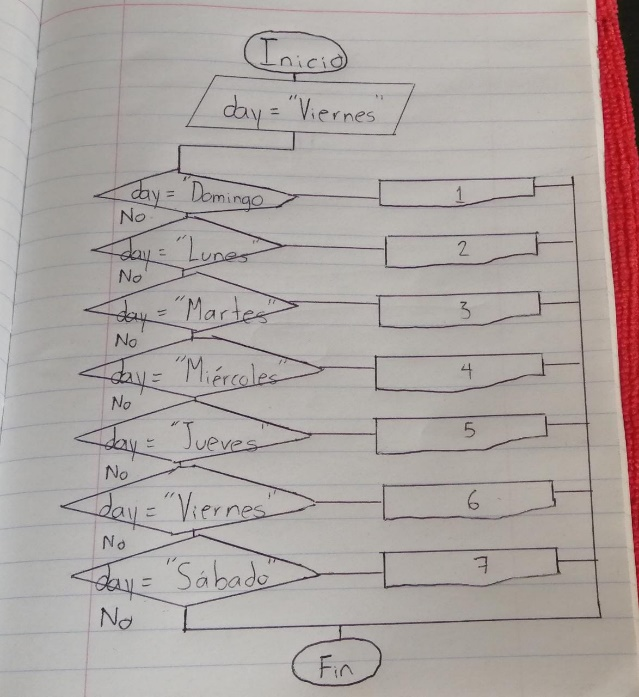 Inicio
day = "Viernes"
day = "Domingo
1
No
day = "Lunes"
2
No
day = "Martes"
3
No
day = "Miércoles"
4
No
day = "Jueves"
5
No
day = "Viernes"
6
No
day = "Sábado"
7
No
Fin